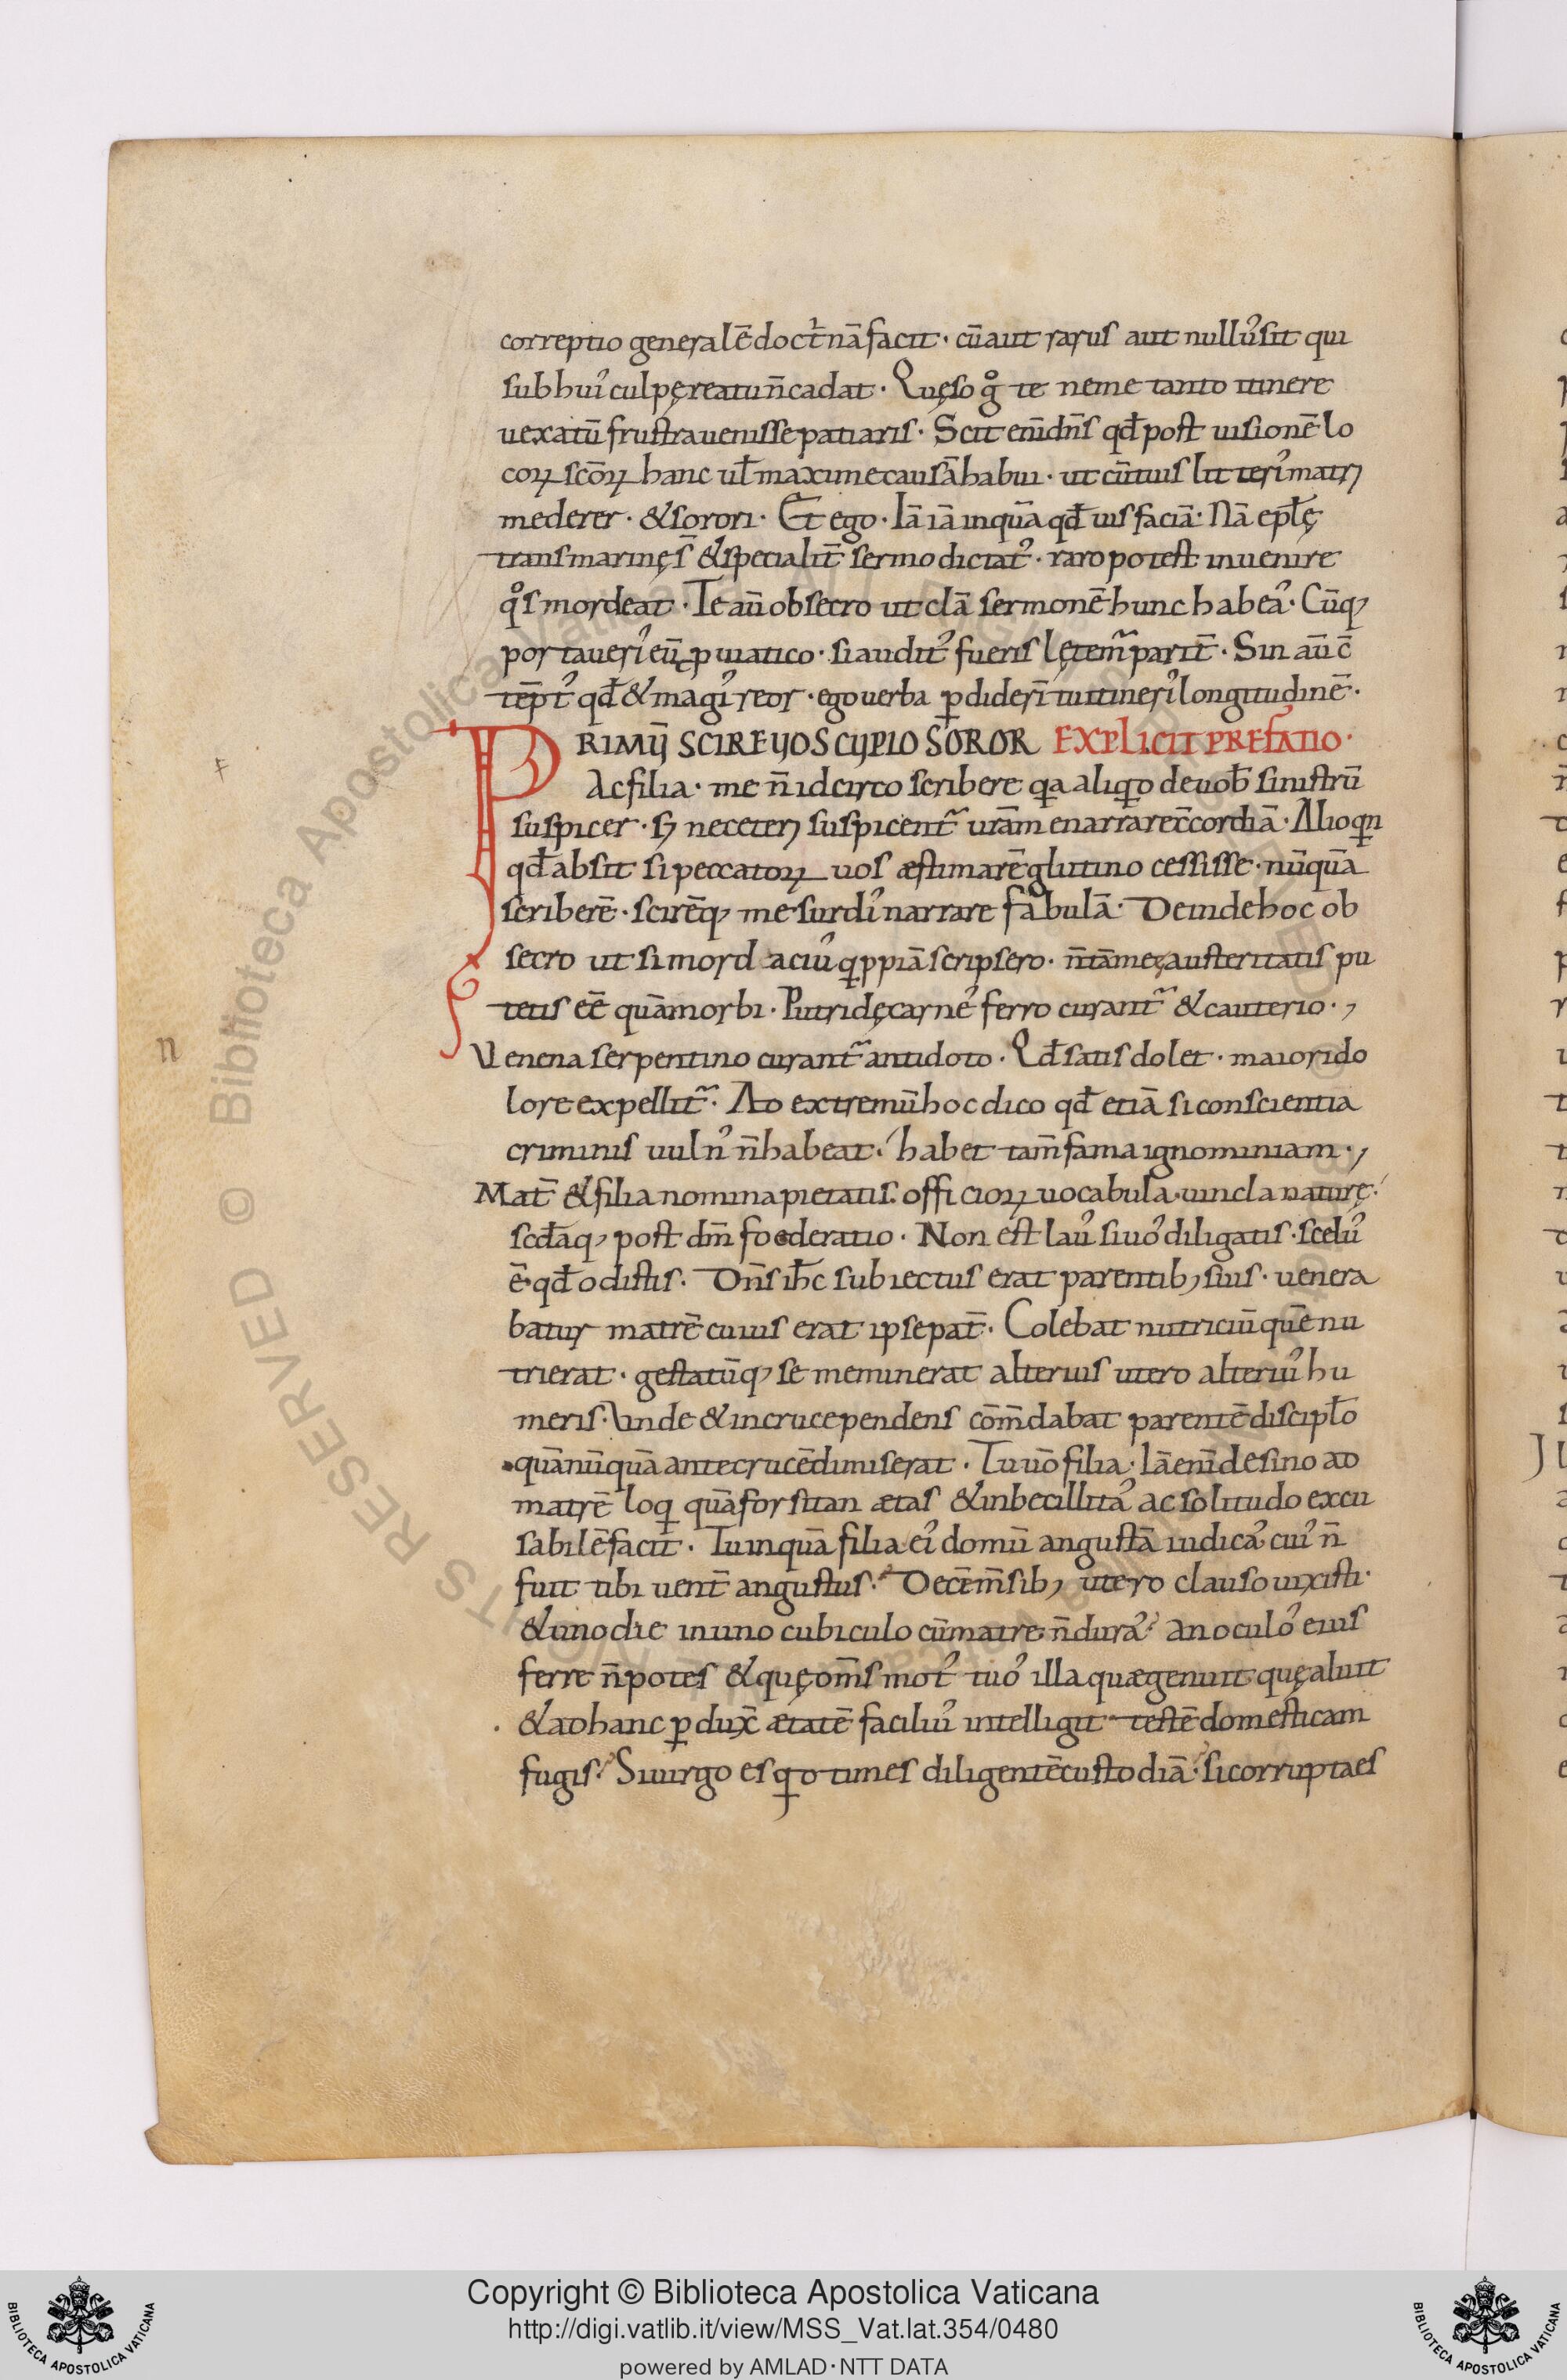 correptio generalē doctͥnā facit · cū aut rarus aut nullꝰ sit qui
sub huiꝰ culpę reatu n̄ cadat · Quęso gͦ te ne me tanto itinere
uexatū frustra uenisse patiaris · Scit eni᷒ dn̄s qđ post uisionē lo
coꝝ sc̄oꝝ hanc uł maxime causā habui · ut cū tuis litterꝭ matrꝫ
mederer · & sorori · Et ego · Iā iā inquā qđ uis faciā · Nā epłę
transmarinę s̄ & specialit̄ sermo dictatꝰ · raro potest inuenire
qͦs mordeat · Te aū obsecro ut clā sermonē hunc habeaꝰ · Cūqꝫ
portauerꝭ eū ꝓ uiatico · si auditꝰ fueris lętem᷑ parit̄ · Sin aū c̄
tēptꝰ qđ & magꝭ reor · ego uerba ꝑdiderī tu itinerꝭ longitudinē ·
PRIMŪ SCIRE UOS CUPIO SOROR EXPLICIT PREFATIO ·
Ac filia · me n̄ idcirco scribere qa aliqo de uob̄ sinistrū
suspicer · sꝫ ne ceterꝫ suspicent᷑ urām enarrare c̄cordiā · Alioqn
qđ absit si peccatoꝝ uos æstimarē glutino cessisse · nūquā
scriberē · scirēqꝫ me surdꝭ narrare fabulā · Deinde hoc ob
secro ut si mordaciuꝰ qppiā scripsero · n̄ tā meę austeritatis pu
tetis eē quā morbi · Putridę carneꝰ ferro curant᷑ & cauterio · ,
Venena serpentino curant᷑ antidoto · Qđ satis dolet · maiori do
lore expellit᷑ · Ad extremū hoc dico qđ etiā si conscientia
criminis uulnꝰ n̄ habeat · habet tam̄ fama ignominiam · ,
Mat̄ & filia nomina pietatis · officioꝝ uocabula · uincla naturę ·
sc̄daqꝫ post dm̄ foederatio · Non est lauꝰ si uoꝰ diligatis · sceluꝰ
ē · qđ odistis · Dn̄s ih̄c subiectus erat parentibꝫ suis · uenera
batur matrē cuius erat ipse pat̄ · Colebat nutriciū quē nu
trierat · gestatūqꝫ se meminerat alterius utero alteriuꝰ hu
meris · Unde & in cruce pendens cōm̄dabat parentē discipło
quā nūquā ante crucē dimiserat · Tu uō filia · Iā eni᷒ desino ad
matrē loq quā forsitan ætas & inbecillitaꝰ ac solitudo excu
sabilē facit · Tu inquā filia eiꝰ domū angustā iudicaꝰ cuiꝰ n̄
fuit tibi uent̄ angustus · Decē m̄sibꝫ utero clauso uixisti ·
& uno die in uno cubiculo cū matre n̄ duraꝰ · an oculoꝰ eius
ferre n̄ potes & quę om̄s motꝰ tuoꝰ illa quæ genuit quę aluit
& ad hanc ꝑdux̄ ætatē faciliuꝰ intelligit · testē domesticam
fugis · Si uirgo es qo times diligentē custodiā · si corrupta es
n
Copyright © Biblioteca Apostolica Vaticana
http://digi.vatlib.it/view/MSS_Vat.lat.354/0480
powered by AMLAD·NTT DATA